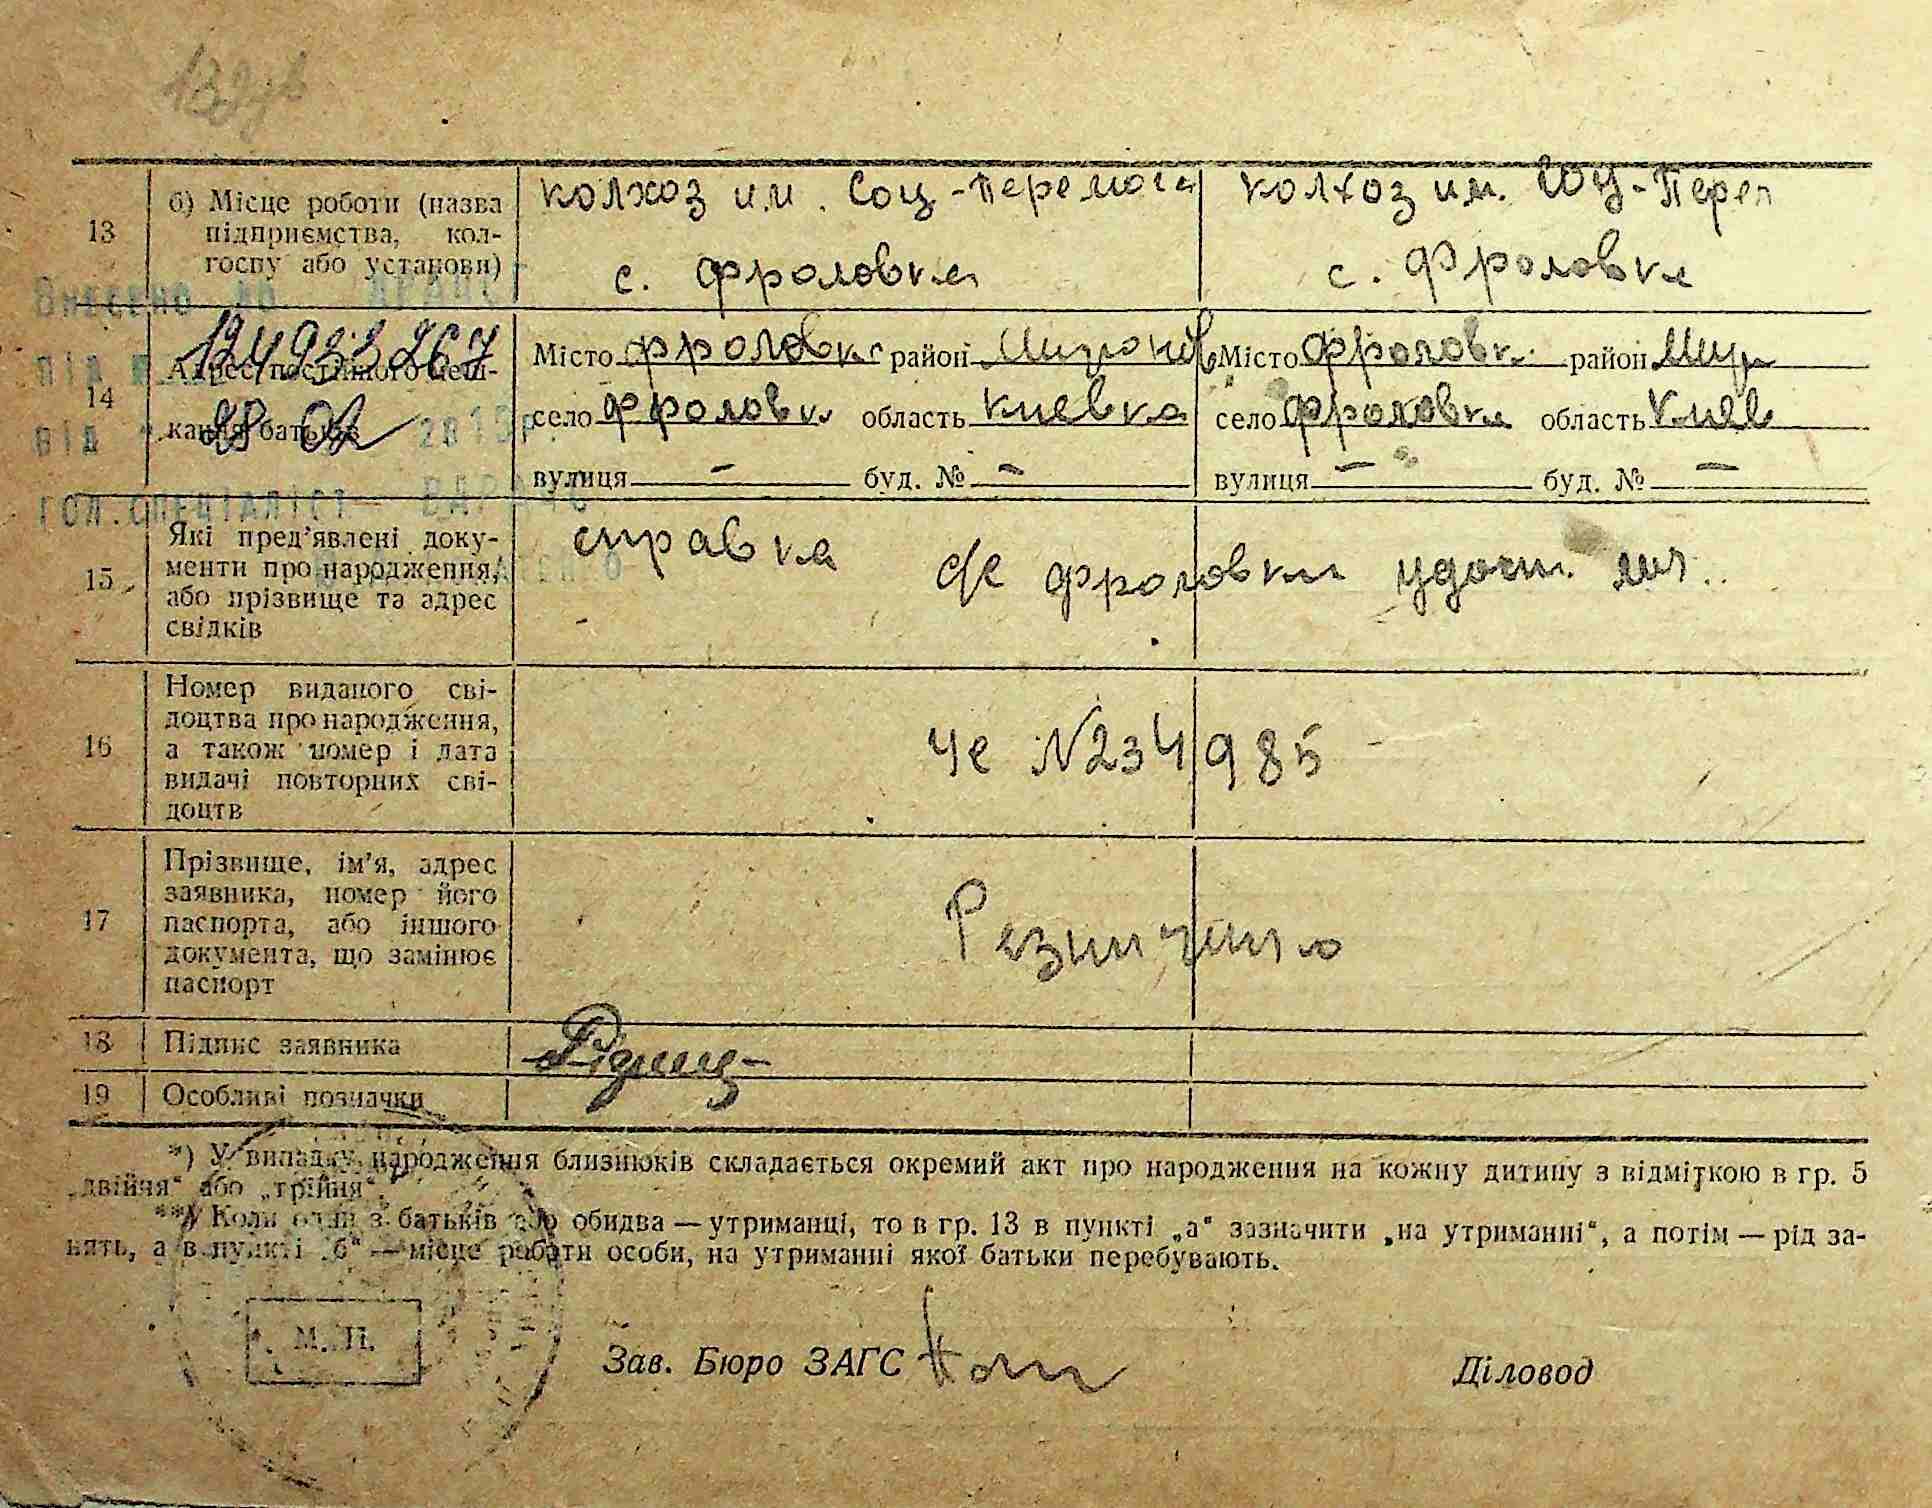 13
б) Місце роботи (назва
підприємства, кол-
госпу або установи)
колхоз им. Соц-Перемога
с. Фроловка
колхоз им. Соц-Перем
с. Фроловка
Внесено до ДРАЦС
під №
від 2013р.
гол.спеціаліст
124933267
28 02
14
Адрес постійного меш-
кання батьків
Місто Фроловка район Миронов
село Фроловка область Киевка
вулиця — буд. № —
Місто Фроловка район Мир
село Фроловка область Киев
вулиця — буд. № —
15
Які пред'явлені доку-
менти про народження,
або прізвище та адрес
свідків
справка с/с Фроловки удост.
16
Номер виданого сві-
доцтва про народження,
а також номер і дата
видачі повторних сві-
доцтв
Че №234985
17
Прізвище, ім'я, адрес
заявника, номер його
паспорта, або іншого
документа, що замінює
паспорт
Резниченко
18
Підпис заявника
19
Особливі позначки
*) У випадку народження близнюків складається окремий акт про народження на кожну дитину з відміткою в гр. 5
„двійня“ або „трійня“.
**) Коли один з батьків або обидва — утриманці, то в гр. 13 в пункті „а“ зазначити „на утриманні“, а потім — рід за-
нять, а в пункті „б“ — місце роботи особи, на утриманні якої батьки перебувають.
М. П.
Зав. Бюро ЗАГС
Діловод